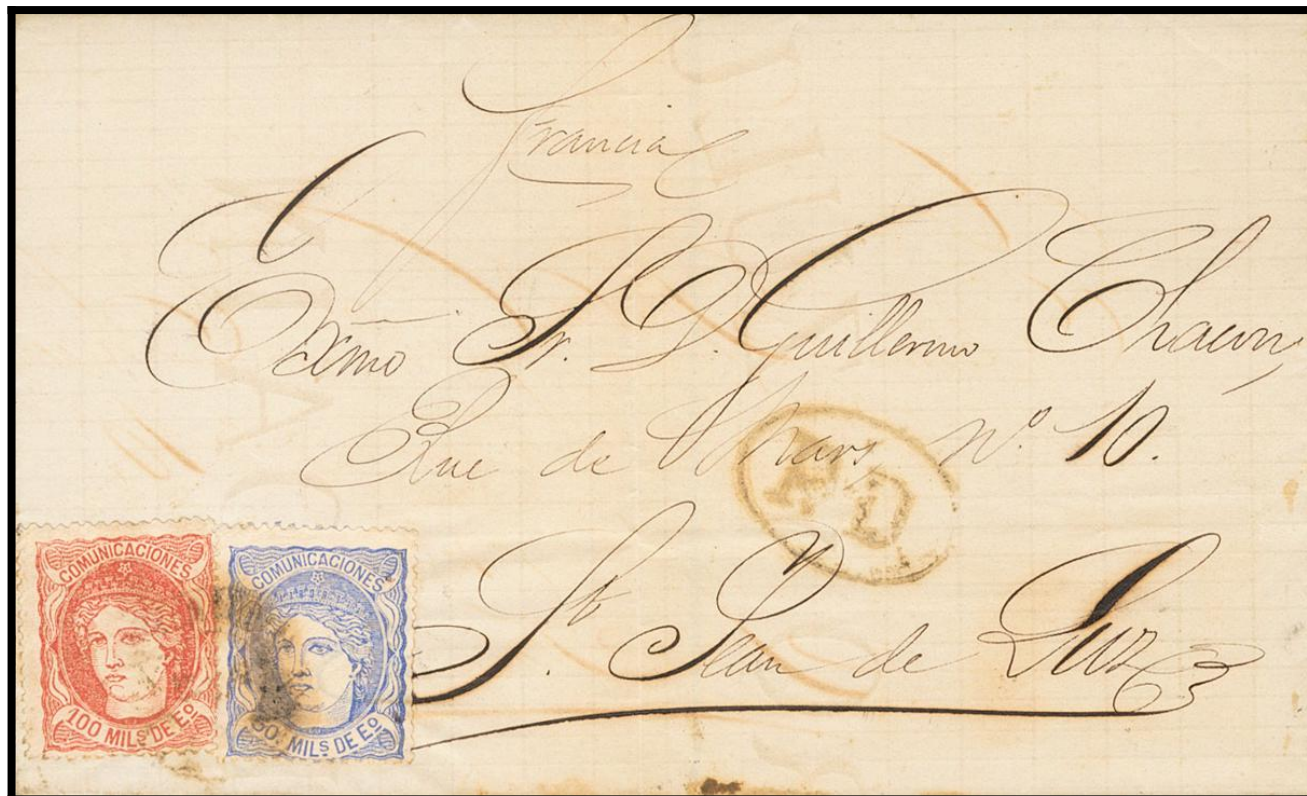 Francia
Exmo Sr. D. Guillermo Chacon,
Rue de Mars nº 10.
PD
St. Jean de Luz
COMUNICACIONES
100 MILS DE EO
COMUNICACIONES
50 MILS DE EO